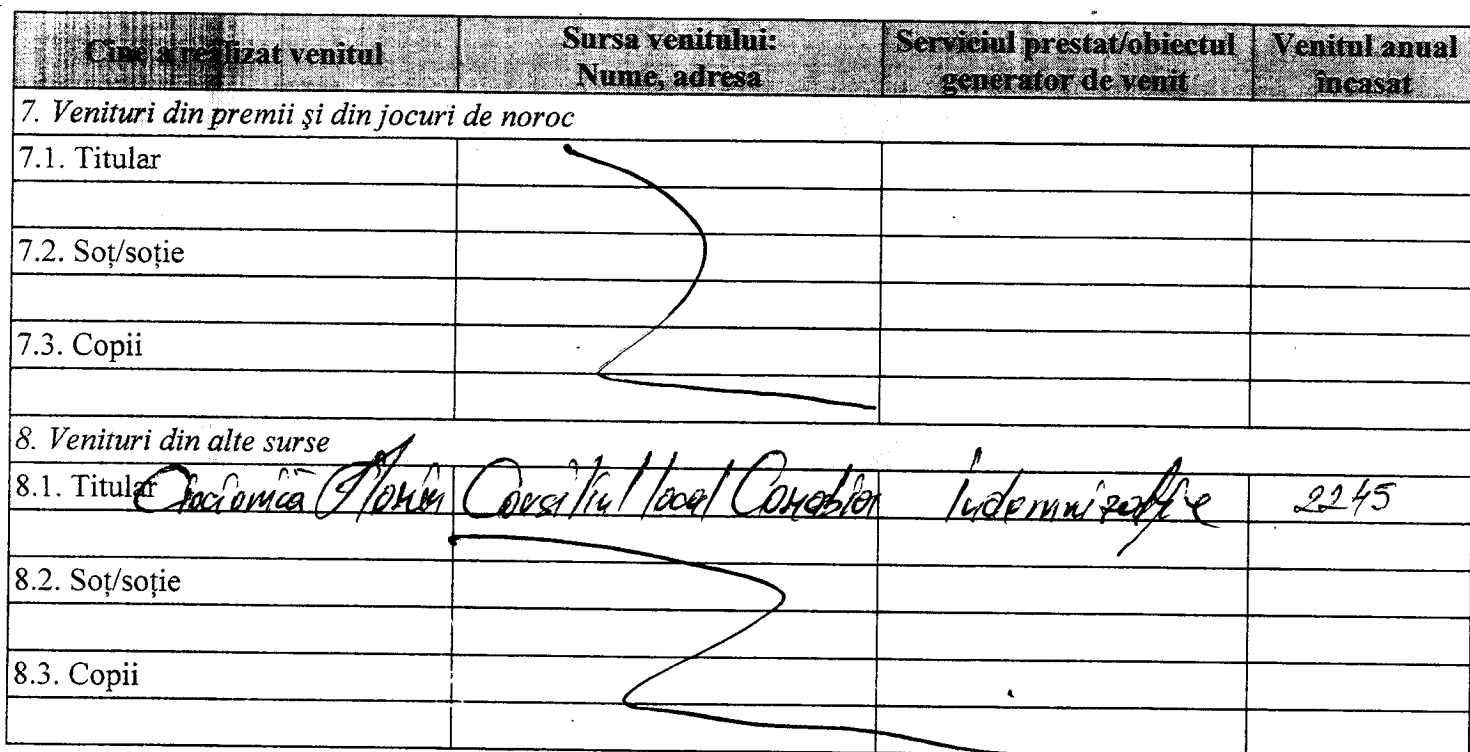 Cine a realizat venitul
Sursa venitului:
Nume, adresa
Serviciul prestat/obiectul
generator de venit
Venitul anual
încasat
7. Venituri din premii și din jocuri de noroc
7.1. Titular
7.2. Soț/soție
7.3. Copii
8. Venituri din alte surse
8.1. Titular Florin Consiliul local Corabia Indemnizație 2245
8.2. Soț/soție
8.3. Copii